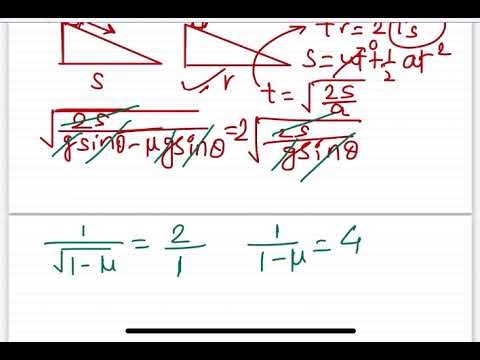 tr = 2 ts
S = ut⁰ + 1/2 at²
S r
t = √(2s/a)
√(2s/(gsinθ - μgsinθ)) = 2√(2s/(gsinθ))
1/√(1-μ) = 2/1 1/(1-μ) = 4